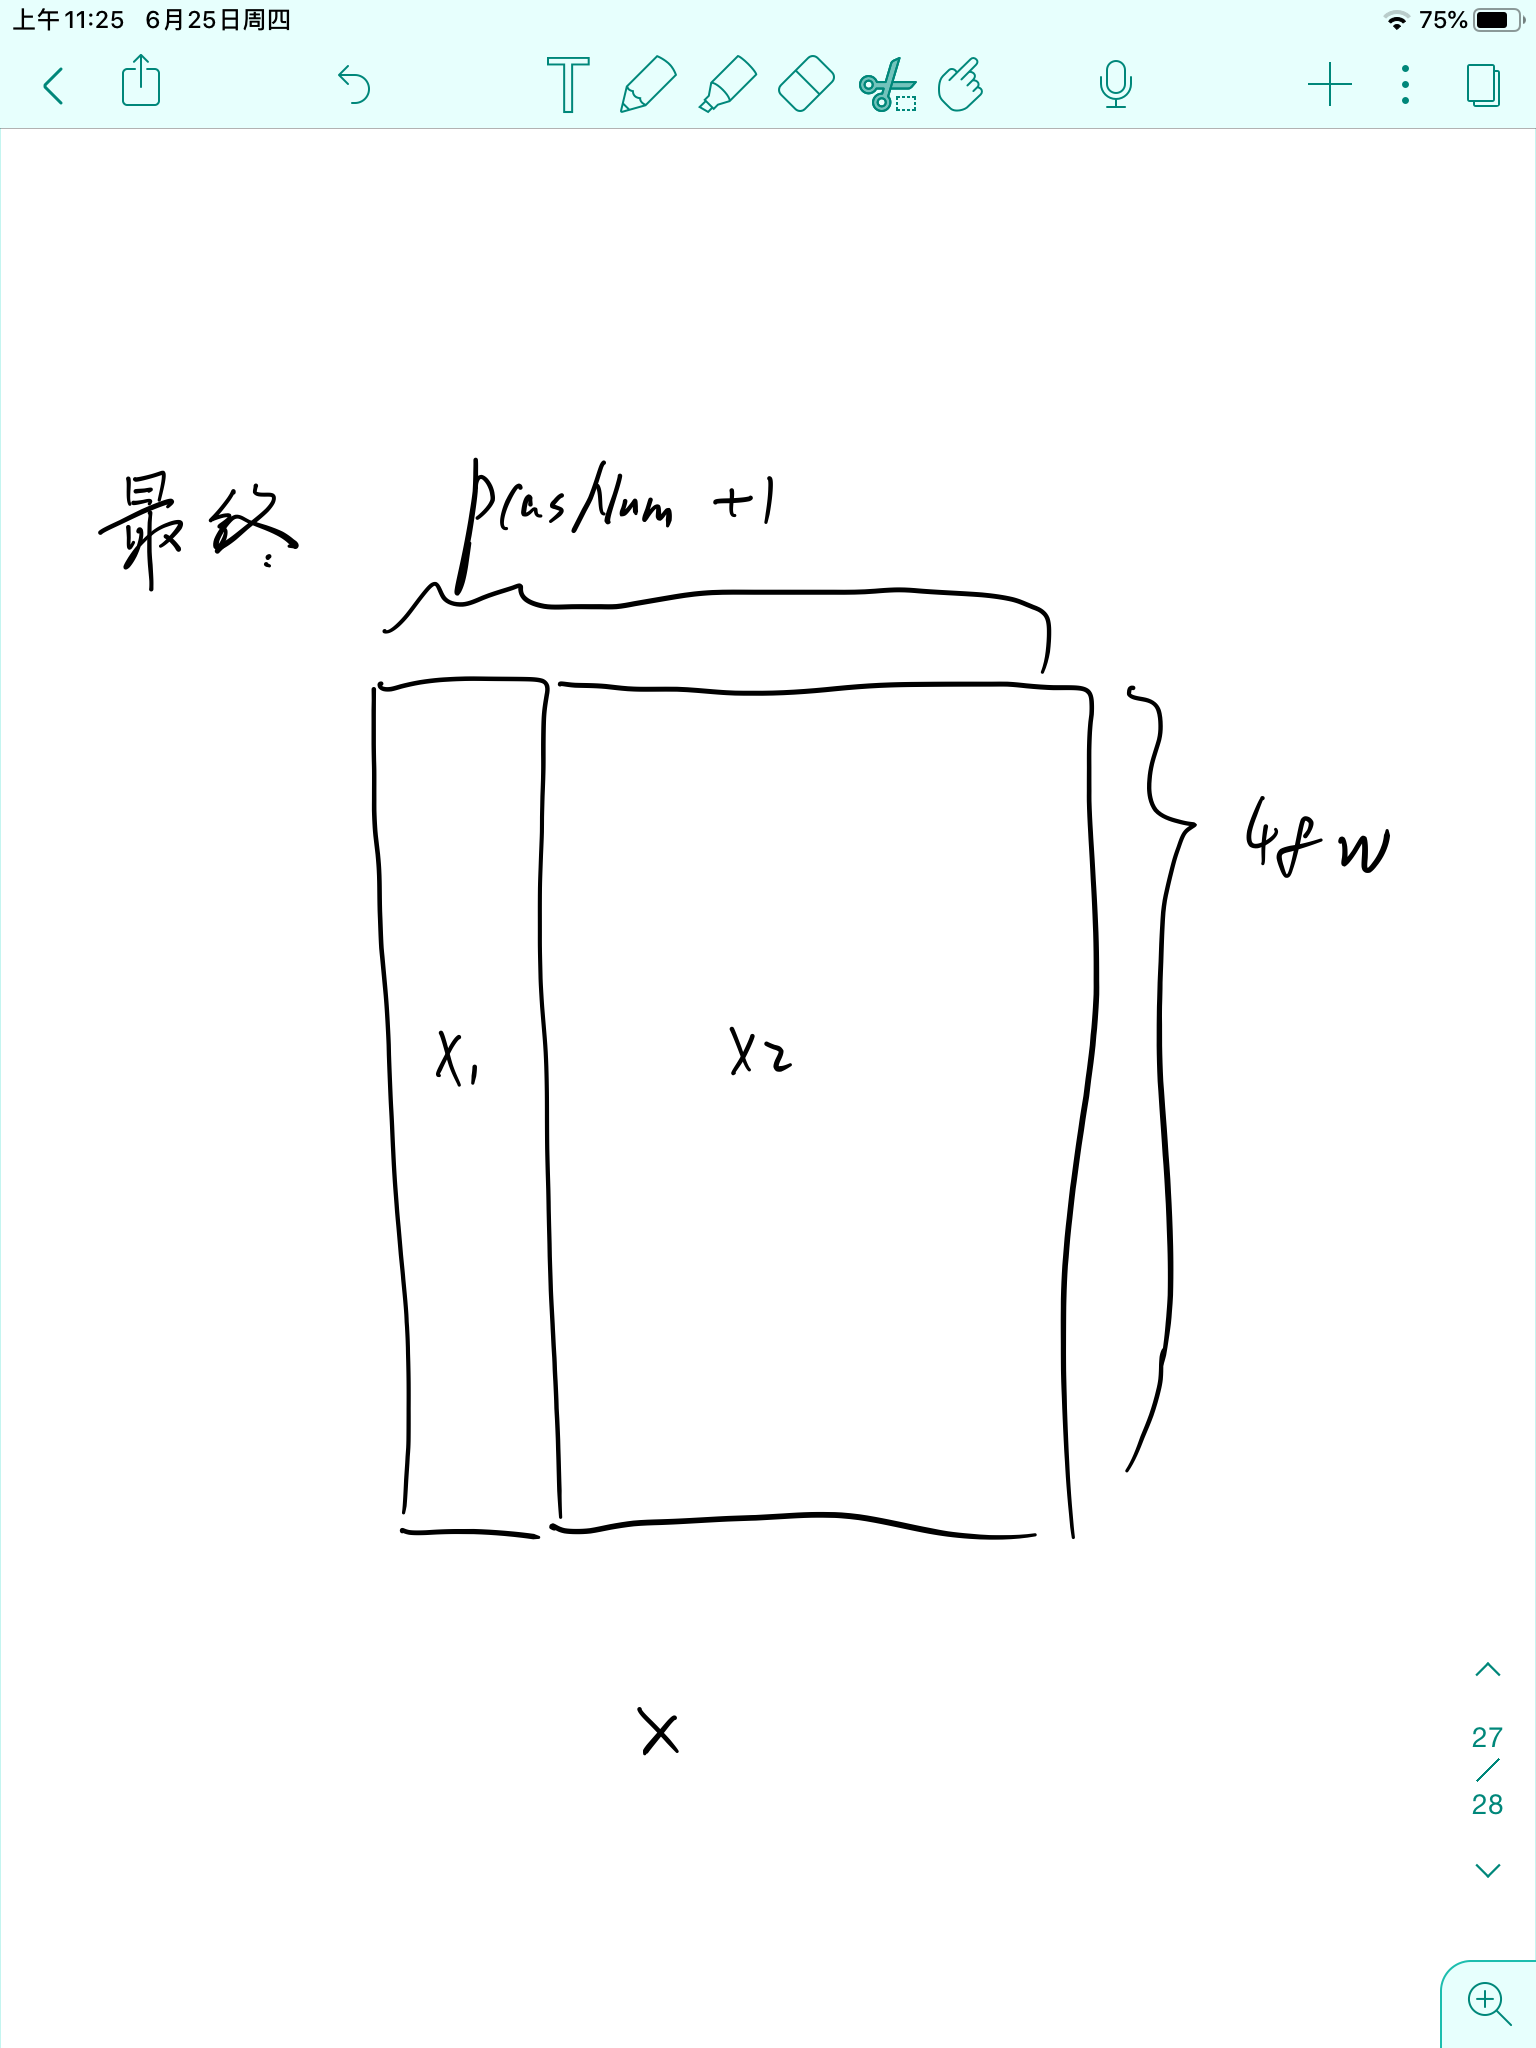 上午11:25 6月25日周四
75%
T
最终:
pcasNum +1
4fw
X1
X2
X
27
/
28